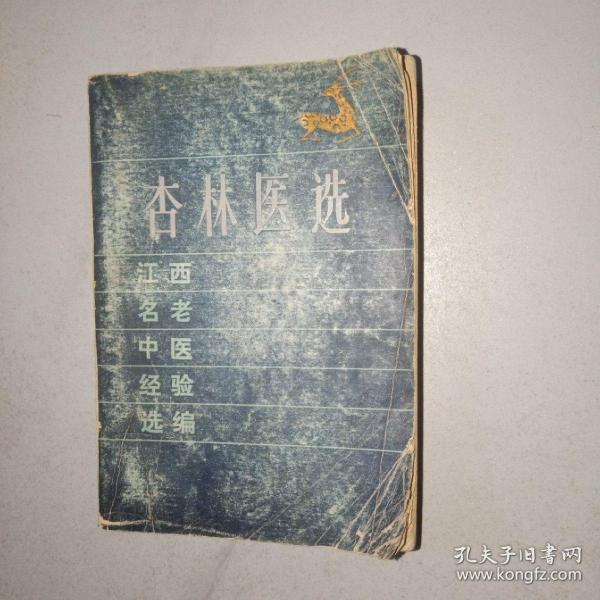 杏林医选
江西
名老
中医
经验
选编
孔夫子旧书网
www.kongfz.com